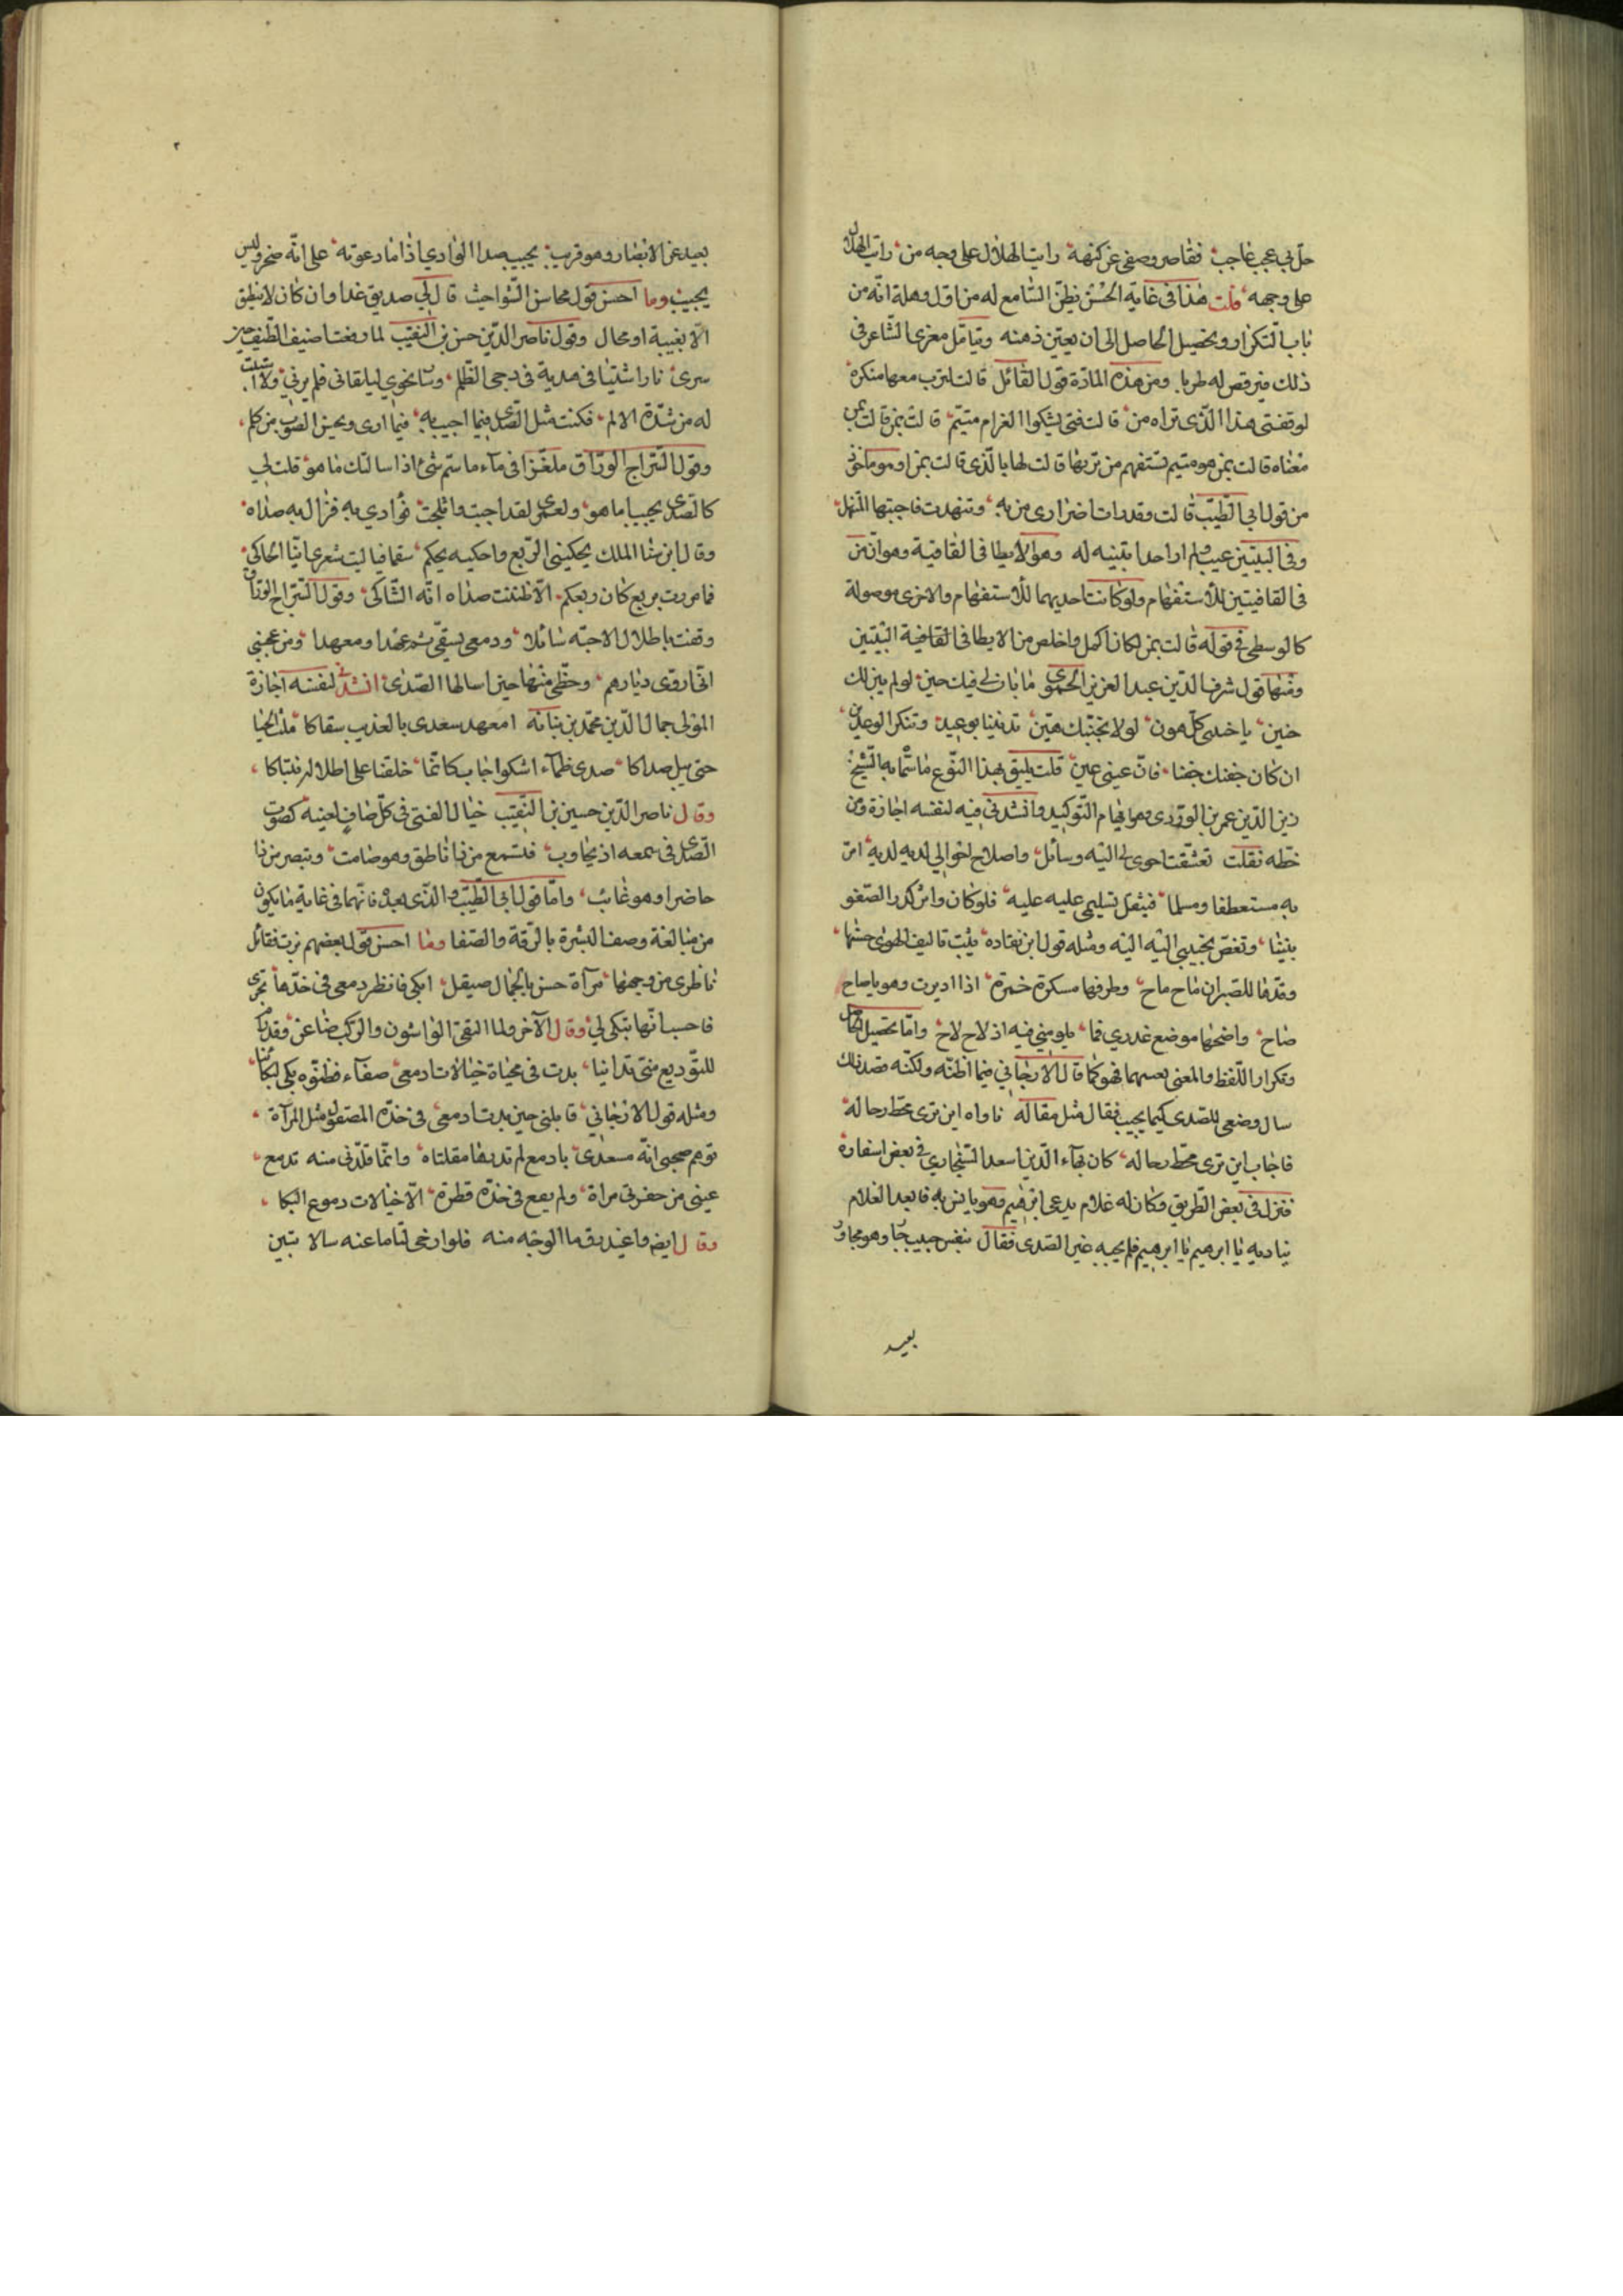 حل بي عجب عاجب فقاصر وصفي عن كنهه رايت الهلال على وجه من رايت الهلال
على وجهه قلت هذا في غاية الحسن يظن السامع له من اول وهلة انه من
باب التكرار وتحصيل الحاصل الى ان يعين ذهنه ويتامل مغزى الشاعر في
ذلك فيرقص له طربا ومن هذه المادة قول القائل قالت لترب معها منكرة
لوقفتي هذا الذي تراه من قالت فتى يشكوا الغرام متيم قالت بمن قالت بمن
معناه قالت بمن هو متيم تستفهم من تربها قالت لها بالذي قالت بمن او هو ماخوذ
من قول ابي الطيب قالت وقد رات اضراري من به وتنهدت فاجبتها المتنهد
وفي البيتين عيب ولم ار احدا يتنبه له وهو الايطا في القافية وهو ان من
في القافيتين للاستفهام ولو كانت احديهما للاستفهام والاخرى موصولة
كالوسطى في قوله قالت بمن لكان اكمل واخلص من الايطا في القافية البيتين
ومنها قول شرف الدين عبد العزيز الحموي ما بان لي فيك حين لو لم يبن لك
حنين يا خدي كل هون لولا تجنبك هين تدنينا بوعيد وتنكر الوعد من
ان كان جفنك جفنا فان عيني عين قلت يليق بهذا النوع ما سماه به الشيخ
زين الدين عمر بن الوردي وهو ايهام التوكيد وانشدني فيه لنفسه اجازة ومن
خطه نقلت تعشقت احوى لي اليه وسائل واصلاح احوالي لديه لديه امر
به مستعطفا ومسلما فيثقل تسليمي عليه عليه فلو كان واش كدر الصفو
بيننا وتغص تحبيبي اليه اليه ومثله قول ابن نقادة يثبت تاليف الهوى حسنها
وقدها للصبران ماح ماح وطرفها مسكرة خمرة اذا اديرت وهو يا صاح
صاح واضحها موضع غدري فما يلومني فيه اذ لاح لاح واما تحصيل الحاصل
وتكرار اللفظ والمعنى بعينهما فهو كما قال الارجاني فيما اظنه ولكنه قصد ذلك
سال وضعى للصدى كيما يجيب فقال مثل مقاله ناداه اين ترى محط رحاله
فاجاب اين ترى محط رحاله كان بهاء الدين اسعد السنجاري في بعض اسفاره
فنزل في بعض الطريق وكان له غلام يدعى ابرهيم وهو يانس به فابعد الغلام
يناديه يا ابرهيم يا ابرهيم فلم يجبه غير الصدى فقال بنفسي حبيب جار وهو مجاور
بعيد
٢
بعيد عن الابصار وهو قريب يجيب صدا الوادي اذا ما دعوته على انه صخر وليس
يجيب وما احسن قول محاسن الشواحث قال لي صديق غدا وان كان لا ينطق
الا بغيبة او محال وقول ناصر الدين حسن بن النقيب لما رفعنا ضيف الطيف حين
سرى نارا شتينا في هدية في دجى الظلم وبات نحوي ليلقاني فلم يرني ولا ابن
له من شدة الالم فكنت مثل الصدى فيما اجيب به فيما ارى وبحسن الصوب من كلم
وقول السراج الوراق ملغزا في ماء ما ستم شئ اذا سالتك ما هو قلت لي
كالصدى يجيب ما هو ولعمري لقد اجبت واثلجت فؤادي به فزال به صداه
وقال ابن سنا الملك يحكيني الربع واحكيه بحكم سقما فيا ليت شعري اينا الحاكي
فما مررت بربع كان ربعكم الا ظننت صداه انه الشاكي وقول السراج الوراق
وقفت باطلال الاحبة سائلا ودمعي يسقي ثم عهدا ومعهدا ومن عجبي
اني اروى ديارهم وحظي منها حين اسالها الصدى انشدني لنفسه اجازة
المولى جمال الدين محمد بن نباته امعهد سعدى بالعذيب سقاكا ملث الحيا
حتى يبل صداكا صدى ظماء اشكوا جاب كانما خلقنا على اطلال ليتباكا
وقال ناصر الدين حسين بن النقيب خيال الفتى في كل صاف لعينه كصوت
الصدى في سمعه اذ يجاوب فتسمع من ذا ناطق وهو صامت وتبصر من ذا
حاضرا وهو غائب واما قول ابي الطيب والذي بعده فانهما في غاية ما يكون
من مبالغة وصف البشرة بالرقة والصفا وما احسن قول بعضهم نزت فقائل
ناظري من وجهها مرآة حسن بالجمال صيقل ابكي فانظر دمعي في خدها تجري
فاحسب انها تبكي لي وقال الآخر ولما التقى الواشون والركب ضاعن وقد بكى
للتوديع متى تدانيا بدت في محياه خيالات ادمعي صفآء فظنوه بكى لبكائيا
ومثله قول الارجاني قابلني حين بدت ادمعي في خده المصقول مثل المرآة
توهم صحبي انه مسعدي بادمع لم تدرفها مقلتاه وانما قلدني منه تدمع
عيني من حفرتي مراة ولم يقع في خده قطرة الا خيالات دموع البكا
وقال ايضه واغيد رق ما الوجه منه فلو ارخى لثاما عنه سالا تبين